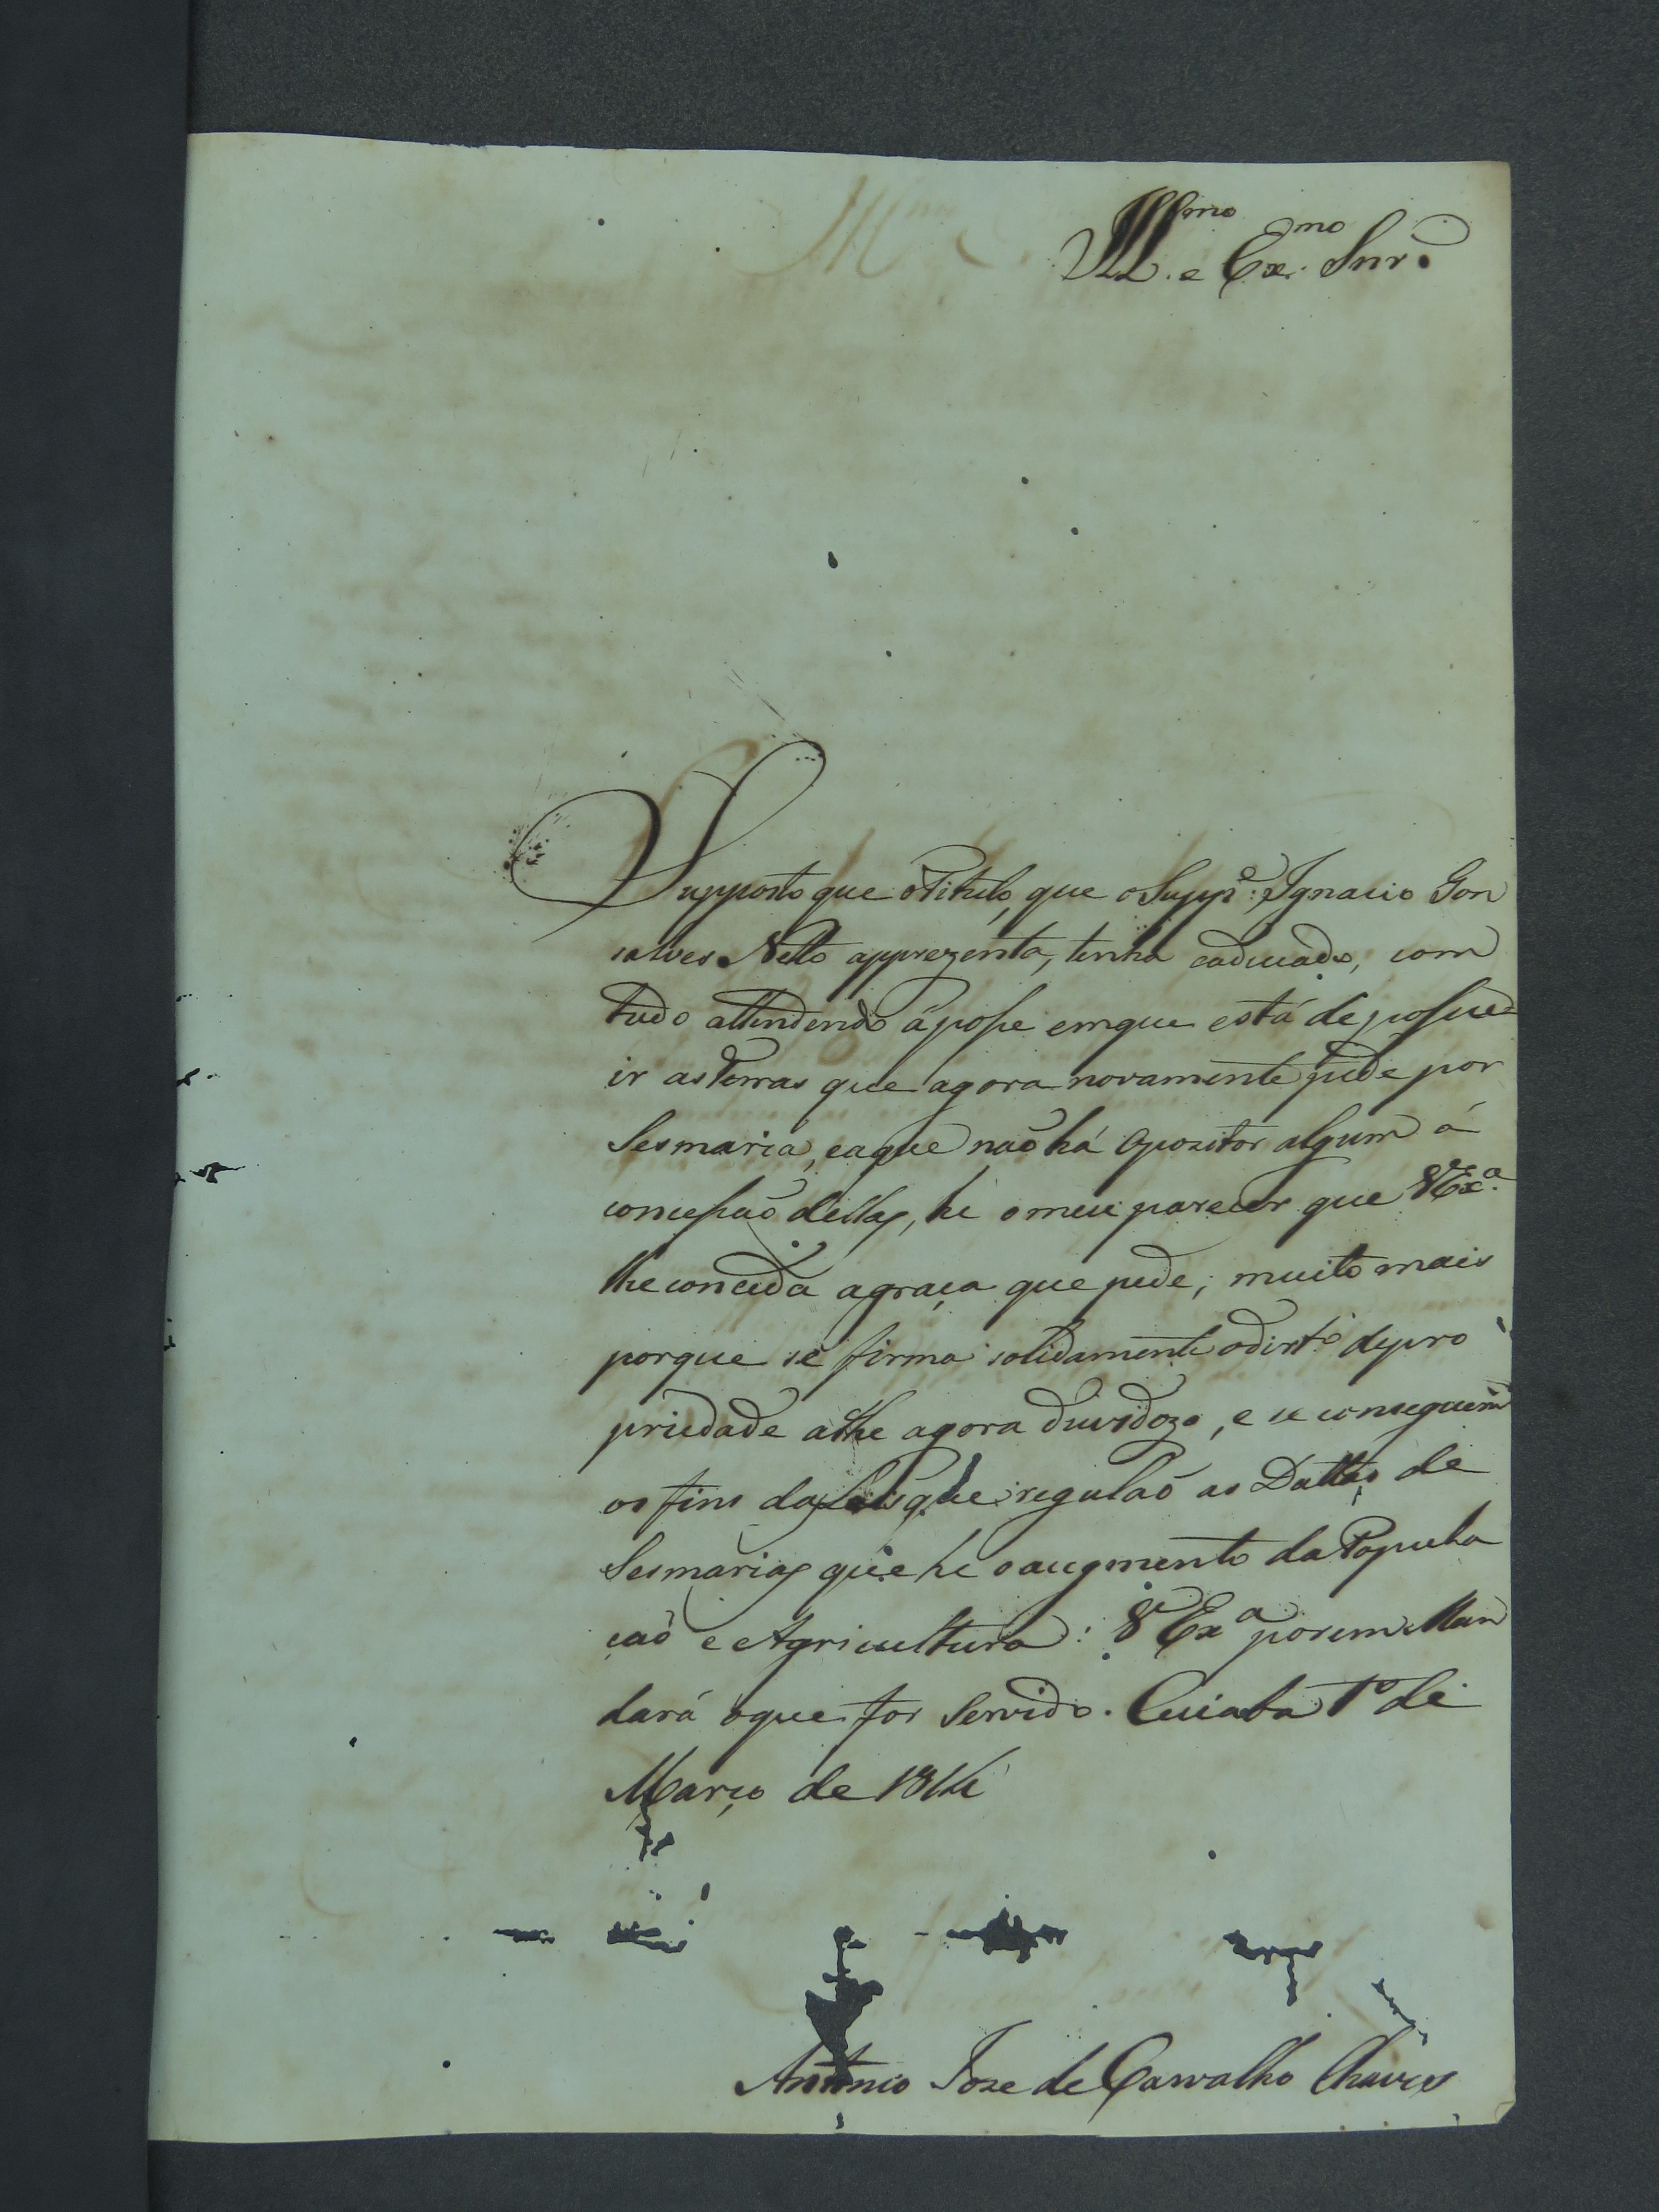 Ill.mo e Ex.mo Snr.
Supposto que o Titulo, que o Supp.e Ignacio Gon
salves Netto apprezenta, tenha caducado, com
tudo attendendo á posse emque está de possue=
ir as terras que agora novamente pede por
Sesmaria, eaque naõ há Opozitor algum á
concessaõ dellas, he omeu parecer que V Ex.a
lhe conceda agraça que pede; muito mais
porque se firma solidamente odirt.o depro
priedade athe agora duvidozo, e se conseguem
os fins das Leis que regulaõ as Dattas de
Sesmarias que he oaugmento da Popula
çaõ e Agricultura: V Ex.a porem Man
dará oque for Servido. Cuiaba 1o de
Março de 1814
Antonio Joze de Carvalho Chaves